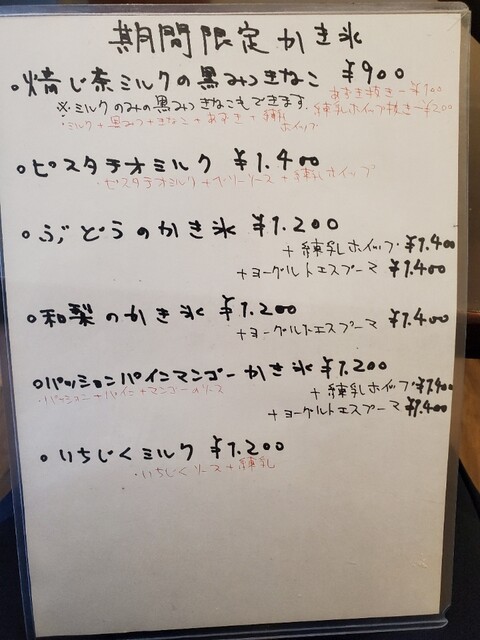 期間限定かき氷
・焙じ茶ミルクの黒みつきなこ ¥900
あずき抜き-¥100
※ミルクのみの黒みつきなこもできます. 練乳ホイップ抜き-¥200
・ミルク+黒みつ+きなこ+あずき+練乳ホイップ
・ピスタチオミルク ¥1.400
・ピスタチオミルク+ベリーソース+練乳ホイップ
・ぶどうのかき氷 ¥1.200
+練乳ホイップ ¥1.400
+ヨーグルトエスプーマ ¥1.400
・和梨のかき氷 ¥1.200
+ヨーグルトエスプーマ ¥1.400
・パッションパインマンゴーかき氷 ¥1.200
・パッション+パイン+マンゴーのソース
+練乳ホイップ ¥1.400
+ヨーグルトエスプーマ ¥1.400
・いちじくミルク ¥1.200
・いちじくソース+練乳